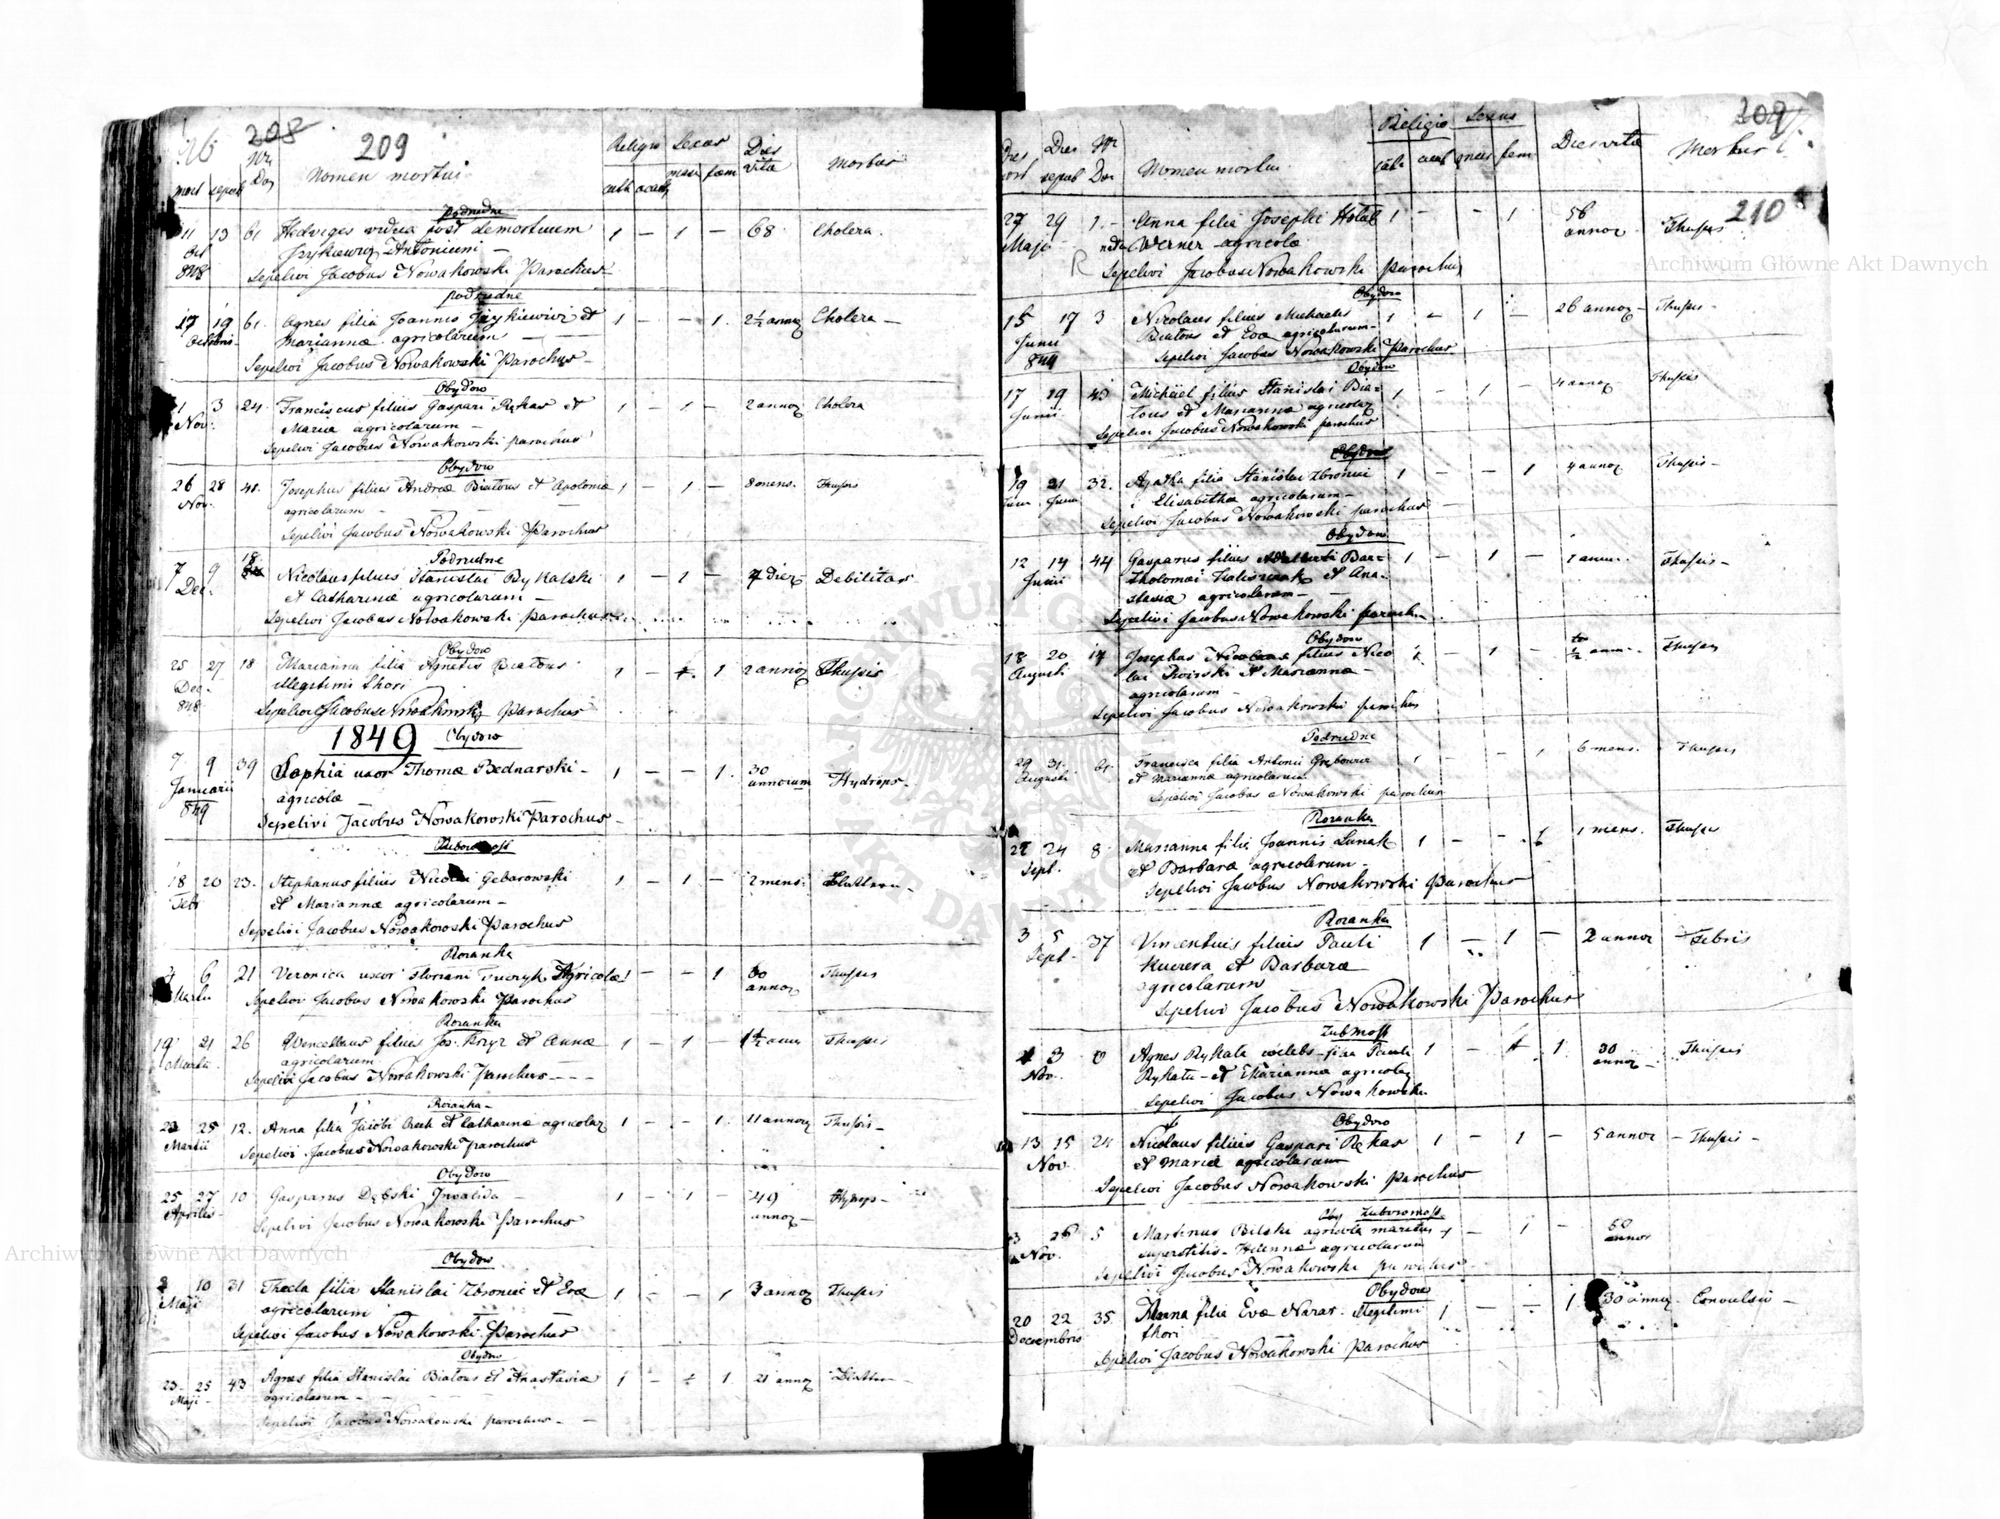 208
209
Nr Dom
Nomen mortui
Religio
Sexus
Dies vitæ
Morbus
mort
sepul
cath
acath
masc
fæm
Podrudne
11 13 61 Hedviges vidua post demortuum 1 - 1 - 68 Cholera
Oct Antonium
848 Sepelivi Jacobus Nowakowski Parochus
Podrudne
17 19 61 Agnes filia Joannis et 1 - - 1 2½ annor Cholera -
Octobris Mariannæ agricolarum
Sepelivi Jacobus Nowakowski Parochus -
Obydow
1 3 24 Franciscus filius Gaspari Rękas et 1 - 1 - 2 annor Cholera
Nov. Mariæ agricolarum -
Sepelivi Jacobus Nowakowski parochus
Obydow
26 28 41. Josephus filius Andreæ Białous et Apoloniæ 1 - 1 - 8 mens. Thussis
Nov. agricolarum -
Sepelivi Jacobus Nowakowski Parochus
Podrudne
7 9 18 Nicolaus filius Stanislai Bykalski 1 - 1 - dier Debilitas
Dec. et Catharinæ agricolarum -
Sepelivi Jacobus Nowakowski parochus
Obydow
25 27 18 Marianna filia Agnetis Białous 1 - 1 2 annor Thussis
Dec. illegitimi thori
848 Sepelivi Jacobus Nowakowski Parochus
1849 Obydow
7 9 39 Sophia uxor Thomæ Bednarski - 1 - - 1. 30 annorum Hydrops -
Januarii agricolæ
849 Sepelivi Jacobus Nowakowski Parochus -
18 20 23. Stephanus filius Nicolai Gebarowski 1 - 1 - 2 mens.
Febr et Mariannæ agricolarum -
Sepelivi Jacobus Nowakowski Parochus
Rozanka
4 6 21 Veronica uxor Floriani agricolæ 1 - - 1 60 annor Thussis
Martii Sepelivi Jacobus Nowakowski Parochus
Rozanka
19 21 26 Wenceslaus filius Jos. et Annæ 1 - 1 - 1½ annor Thussis
Martii agricolarum
Sepelivi Jacobus Nowakowski Parochus - - -
Rozanka -
23 25 12. Anna filia Jacobi et Catharinæ agricolar 1 - - 1. 11 annor Thussis -
Martii Sepelivi Jacobus Nowakowski Parochus
Obydow
25 27 10 Gasparus Dębski Invalida - 1 - 1 - 49 annor - Hydrops -
Aprilis Sepelivi Jacobus Nowakowski Parochus
Obydow
8 10 31 Thecla filia Stanislai et Evæ 1 - - 1 3 annor Thussis
Maji agricolarum
Sepelivi Jacobus Nowakowski Parochus
Obydow
23 25 43 Agnes filia Stanislai Białous et Anastasiæ 1 - 1. 21 annor
Maji - agricolarum -
Sepelivi Jacobus Nowakowski parochus -
209
Dies mort
Dies sepul
Nr Dom
Nomen mortui
Religio
Sexus
cath
acat
mas
fem
Dies vitæ
Morbus
210
27 29 1 - Anna filia Josephi 1 - - 1 56 annor Thussis
Maji nata Werner agricolæ
Sepelivi Jacobus Nowakowski parochus
Obydow
15 17 3 Nicolaus filius Michaelis 1 - 1 - 26 annor - Thussis -
Junii Białous et Evæ agricolarum -
849 Sepelivi Jacobus Nowakowski Parochus
Obydow
17 19 43 Michael filius Stanislai Bia= 1 - 1 - 4 annor Thussis
Junii. lous et Mariannæ agricolar
Sepelivi Jacobus Nowakowski parochus
Obydow
19 21 32. Agatha filia Stanislai 1 - - 1 4 annor Thussis -
Juni Elisabethæ agricolarum -
Sepelivi Jacobus Nowakowski parochus -
Obydow
12 14 44 Gasparus filius Bar= 1 - 1 - 1 anni. Thussis -
Junii tholomæi et Ana=
stasiæ agricolarum -
Sepelivi Jacobus Nowakowski paroch
Obydow
18 20 14 Josephus filius Nico 1 - 1 - ½ anni - Thussis
Augusti lai et Mariannæ -
agricolarum -
Sepelivi Jacobus Nowakowski parochus
Podrudne
29 31. 61. Francisca filia Antonii 1 - - 1 6 mens. Thussis
Augusti et Mariannæ agricolarum
Sepelivi Jacobus Nowakowski parochus
Rozanka
22 24 8 Marianna filia Joannis Lunak 1 - - 1 1 mens. Thussis
Sept. et Barbaræ agricolarum -
Sepelivi Jacobus Nowakowski Parochus
Rozanka
3 5 37 Vincentius filius Pauli 1 - 1 - 2 annor Febris
Sept. Kucera et Barbaræ
agricolarum
Sepelivi Jacobus Nowakowski Parochus
Zubmost
1 3 9 Agnes Rykała cœlebs filia Pauli 1 - 1 30 annor - Thussis
Nov. Rykała - et Mariannæ agricolar
Sepelivi Jacobus Nowakowski
Obydow
13 15 24 Nicolaus filius Gaspari Rękas 1 - 1 - 5 annor - Thussis -
Nov. et Mariæ agricolarum
Sepelivi Jacobus Nowakowski parochus
Zubowmost
26 5 Martinus Bilski agricola maritus 1 - 1 - 60 annor
Nov. superstitis - Helennæ agricolarum
Sepelivi Jacobus Nowakowski parochus
Obydow
20 22 35 Anna filia Evæ Naras. illegitimi 1 - - 1 30 annor - Convulsio -
Decembris thori
Sepelivi Jacobus Nowakowski Parochus
Archiwum Główne Akt Dawnych
Archiwum Główne Akt Dawnych
ARCHIWUM GŁÓWNE AKT DAWNYCH